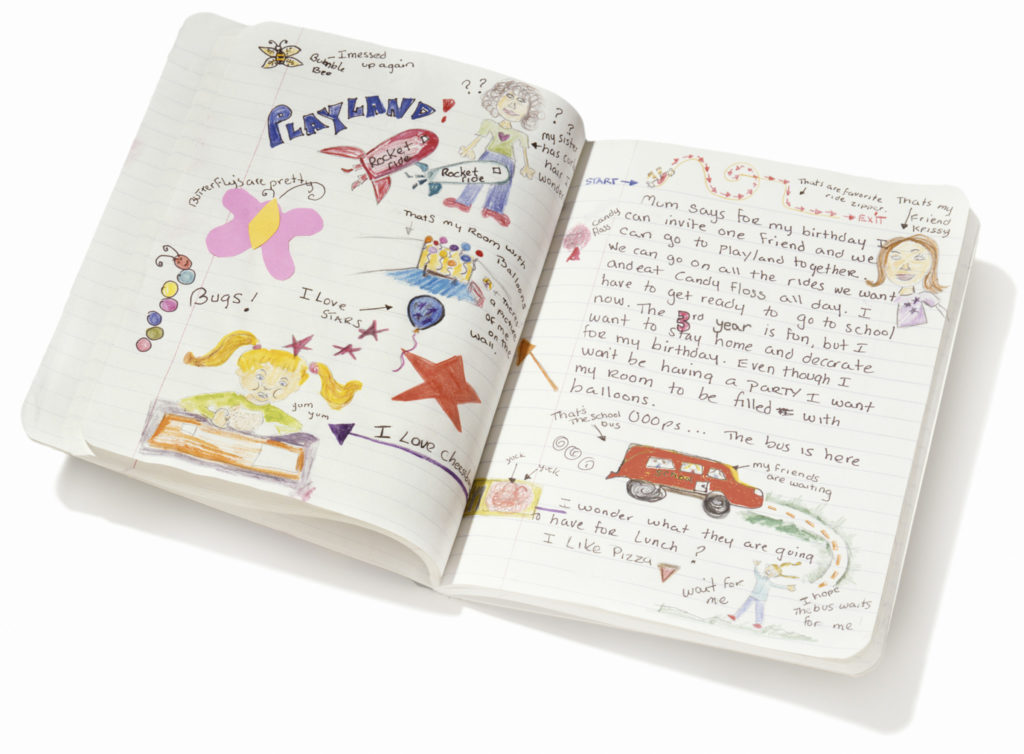 Bumble
Bee
- I messed
up again
PLAYLAND!
? ?
? ?
my sister
has curly
hair I
wonder
Rocket
ride
Rocket
ride
Butterflys are pretty
Thats my Room with
Balloons
+ Theres
a picture
of me
on the
wall.
Bugs!
I Love
STARS
yum
yum
I Love Cheese
START
EXIT
That's are favorite
ride zipper
Thats my
friend
Krissy
Candy
floss
Mum says for my birthday I
can invite one friend and we
can go to Playland together.
We can go on all the rides we want
and eat Candy Floss all day. I
have to get ready to go to school
now. The 3rd year is fun, but I
want to stay home and decorate
for my birthday. Even though I
won't be having a PARTY I want
my room to be filled with
balloons.
That's
The school
bus
OOOps... The bus is here
my friends
are waiting
yuck
yuck
I wonder what they are going
to have for Lunch ?
I Like Pizza
wait for
me
I hope
The bus waits
for me